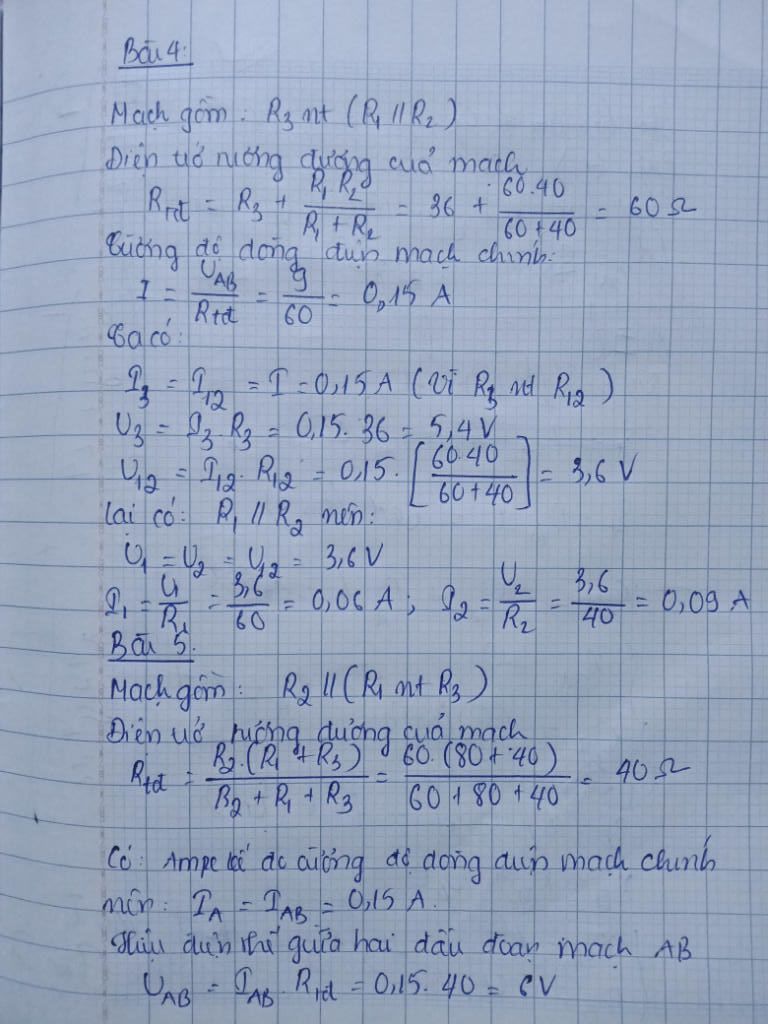 Bài 4:
Mạch gồm: R3 nt (R1 // R2)
Điện trở tương đương của mạch
Rtđ = R3 + R1 R2 / R1 + R2 = 36 + 60.40 / 60+40 = 60 Ω
Cường độ dòng điện mạch chính:
I = UAB / Rtđ = 9 / 60 = 0,15 A
Ta có:
I3 = I12 = I = 0,15 A (Vì R3 nt R12)
U3 = I3. R3 = 0,15. 36 = 5,4 V
U12 = I12. R12 = 0,15. [60.40 / 60+40] = 3,6 V
Lại có: R1 // R2 nên:
U1 = U2 = U12 = 3,6 V
I1 = U1 / R1 = 3,6 / 60 = 0,06 A ; I2 = U2 / R2 = 3,6 / 40 = 0,09 A
Bài 5.
Mạch gồm: R2 // (R1 nt R3)
Điện trở tương đương của mạch
Rtđ = R2.(R1 + R3) / R2 + R1 + R3 = 60.(80+40) / 60+80+40 = 40 Ω
Có: Ampe kế đo cường độ dòng điện mạch chính
nên: IA = IAB = 0,15 A.
Hiệu điện thế giữa hai đầu đoạn mạch AB
UAB = IAB. Rtđ = 0,15. 40 = 6V